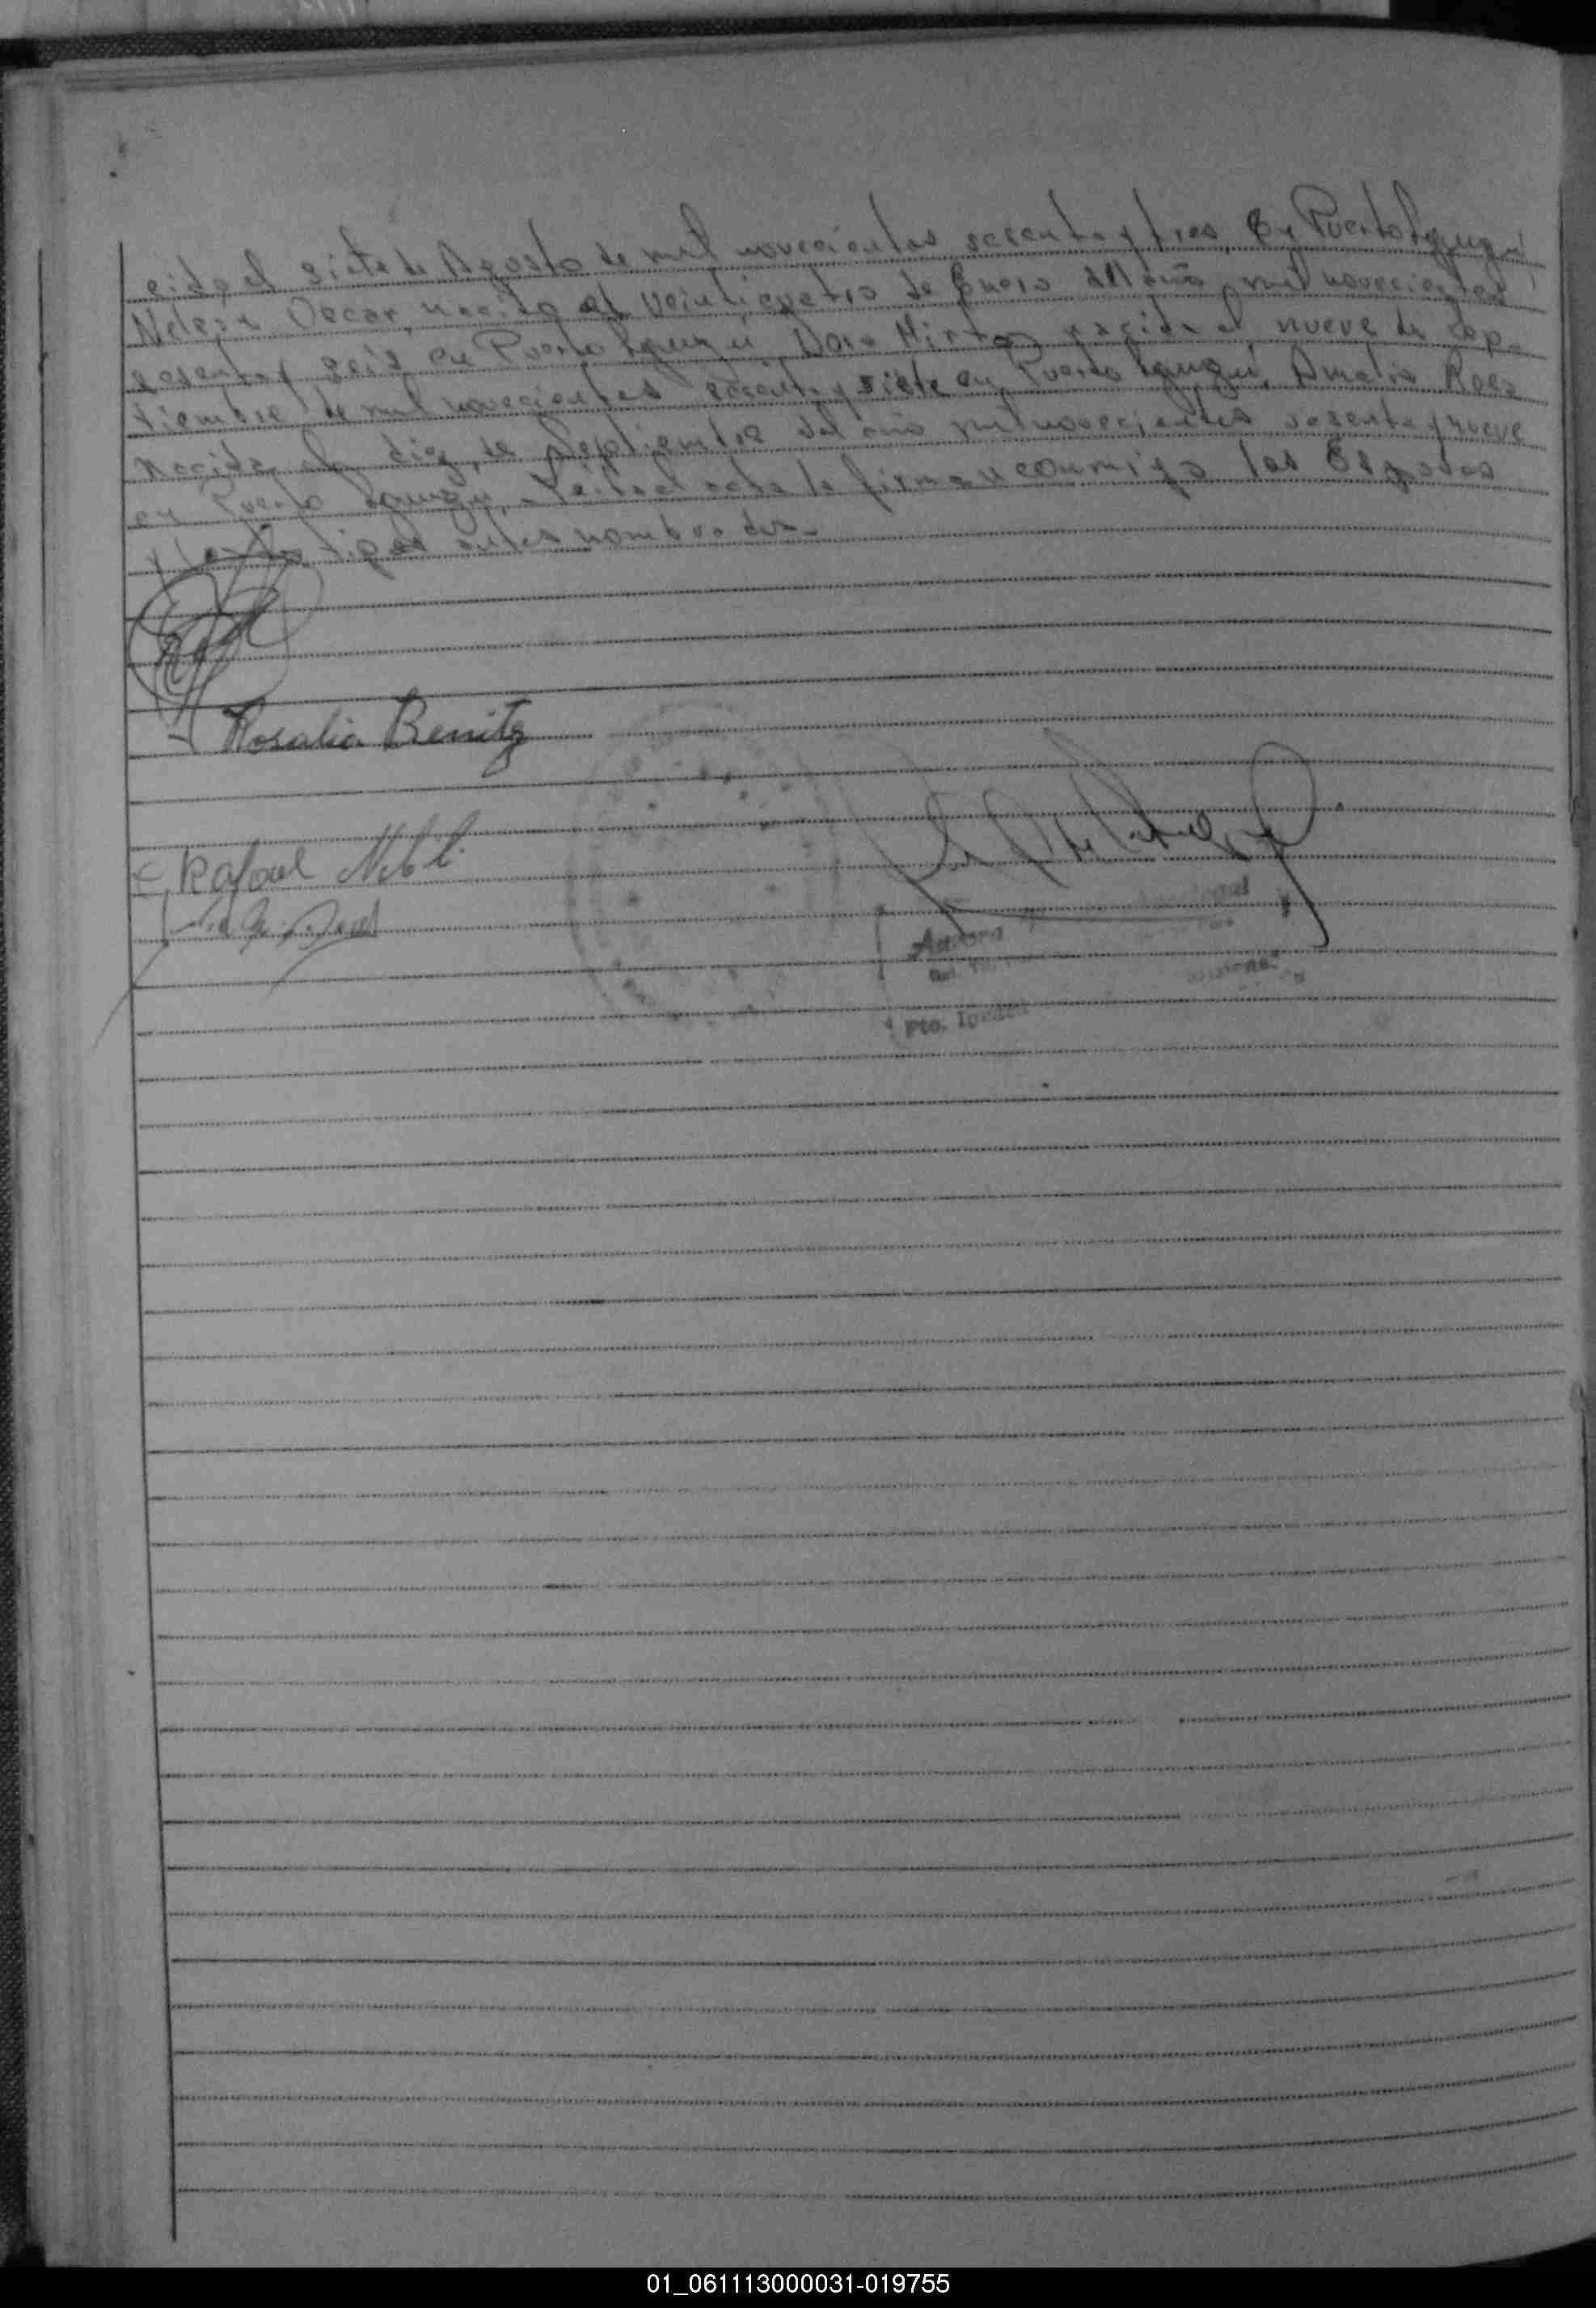 cido el siete de Agosto de mil novecientos sesenta y tres, En Puerto Iguazú
Nelson Oscar, nacido el veinticuatro de Enero del año mil novecientos
sesenta y seis en Puerto Iguazú, Dora Mirta, nacida el nueve de Sep-
tiembre de mil novecientos sesenta y siete en Puerto Iguazú, Amalia Rosa
Nacida el diez de Septiembre del año mil novecientos sesenta y nueve
en Puerto Iguazú, Leída el acta la firman conmigo los Esposos
y los testigos antes nombrados.-
Rosalia Benitz
Rafael
Pto. Iguazú
01_061113000031-019755